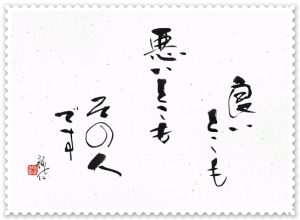 良い
ところも
悪いところも
その人
です